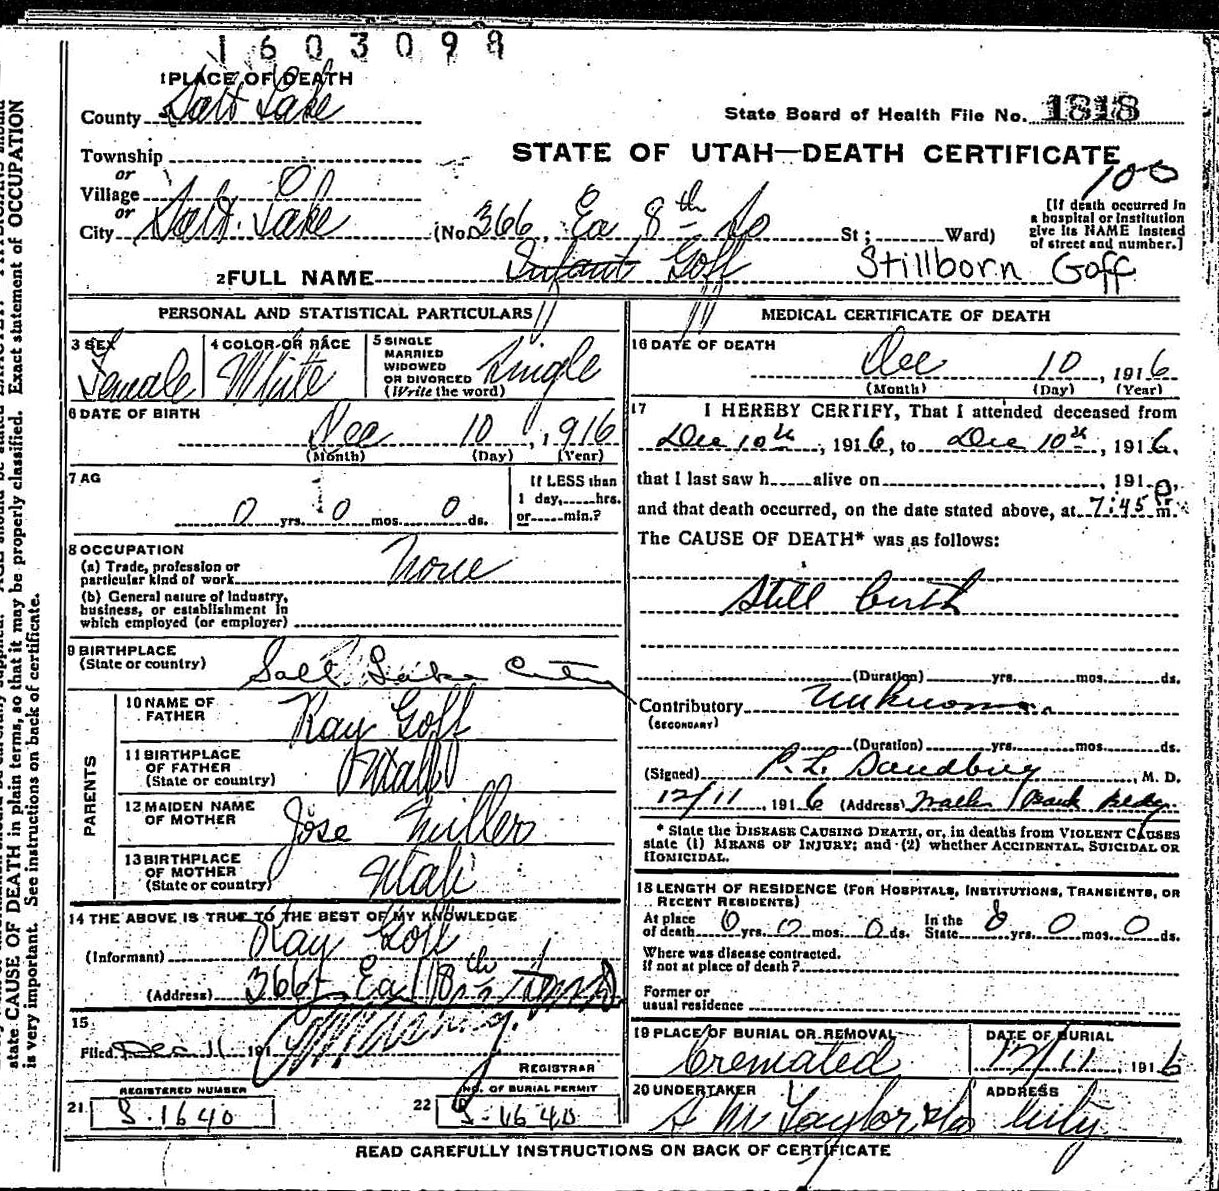 1603098
1 PLACE OF DEATH
County Salt Lake
State Board of Health File No. 1318
Township
or
Village
or
City Salt Lake
STATE OF UTAH—DEATH CERTIFICATE
100
(No. 366 Ea 8th So St; Ward)
[If death occurred in
a hospital or institution
give its NAME instead
of street and number.]
2 FULL NAME Infant Goff Stillborn Goff
PERSONAL AND STATISTICAL PARTICULARS
3 SEX
Female
4 COLOR OR RACE
White
5 SINGLE
MARRIED
WIDOWED
OR DIVORCED
(Write the word)
Single
6 DATE OF BIRTH
Dec 10, 1916
(Month) (Day) (Year)
7 AG
0 yrs. 0 mos. 0 ds.
If LESS than
1 day, hrs.
or min.?
8 OCCUPATION
(a) Trade, profession or
particular kind of work None
(b) General nature of industry,
business, or establishment in
which employed (or employer)
9 BIRTHPLACE
(State or country) Salt Lake City
PARENTS
10 NAME OF
FATHER Ray Goff
11 BIRTHPLACE
OF FATHER
(State or country) Utah
12 MAIDEN NAME
OF MOTHER Jose Miller
13 BIRTHPLACE
OF MOTHER
(State or country) Utah
14 THE ABOVE IS TRUE TO THE BEST OF MY KNOWLEDGE
(Informant) Ray Goff
(Address) 366 Ea 8th
15
Filed Dec 11 191
REGISTRAR
REGISTERED NUMBER
21 S-1640
NO. OF BURIAL PERMIT
22 S-1640
MEDICAL CERTIFICATE OF DEATH
16 DATE OF DEATH
Dec 10, 1916
(Month) (Day) (Year)
17 I HEREBY CERTIFY, That I attended deceased from
Dec 10th, 1916, to Dec 10th, 1916,
that I last saw h alive on , 191
and that death occurred, on the date stated above, at 7:45 P m.
The CAUSE OF DEATH* was as follows:
Still birth
(Duration) yrs. mos. ds.
Contributory Unknown
(SECONDARY)
(Duration) yrs. mos. ds.
(Signed) P. L. Sandberg, M. D.
12/11, 1916 (Address) Walker Bank Bldg.
* State the DISEASE CAUSING DEATH, or, in deaths from VIOLENT CAUSES
state (1) MEANS OF INJURY; and (2) whether ACCIDENTAL, SUICIDAL OR
HOMICIDAL.
18 LENGTH OF RESIDENCE (FOR HOSPITALS, INSTITUTIONS, TRANSIENTS, OR
RECENT RESIDENTS)
At place
of death 0 yrs. 0 mos. 0 ds. In the
State 0 yrs. 0 mos. 0 ds.
Where was disease contracted.
if not at place of death?
Former or
usual residence
19 PLACE OF BURIAL OR REMOVAL
Cremated
DATE OF BURIAL
12/11, 1916
20 UNDERTAKER
S M Taylor & Co
ADDRESS
City
READ CAREFULLY INSTRUCTIONS ON BACK OF CERTIFICATE
state CAUSE OF DEATH in plain terms, so that it may be properly classified. Exact statement of OCCUPATION
is very important. See instructions on back of certificate.